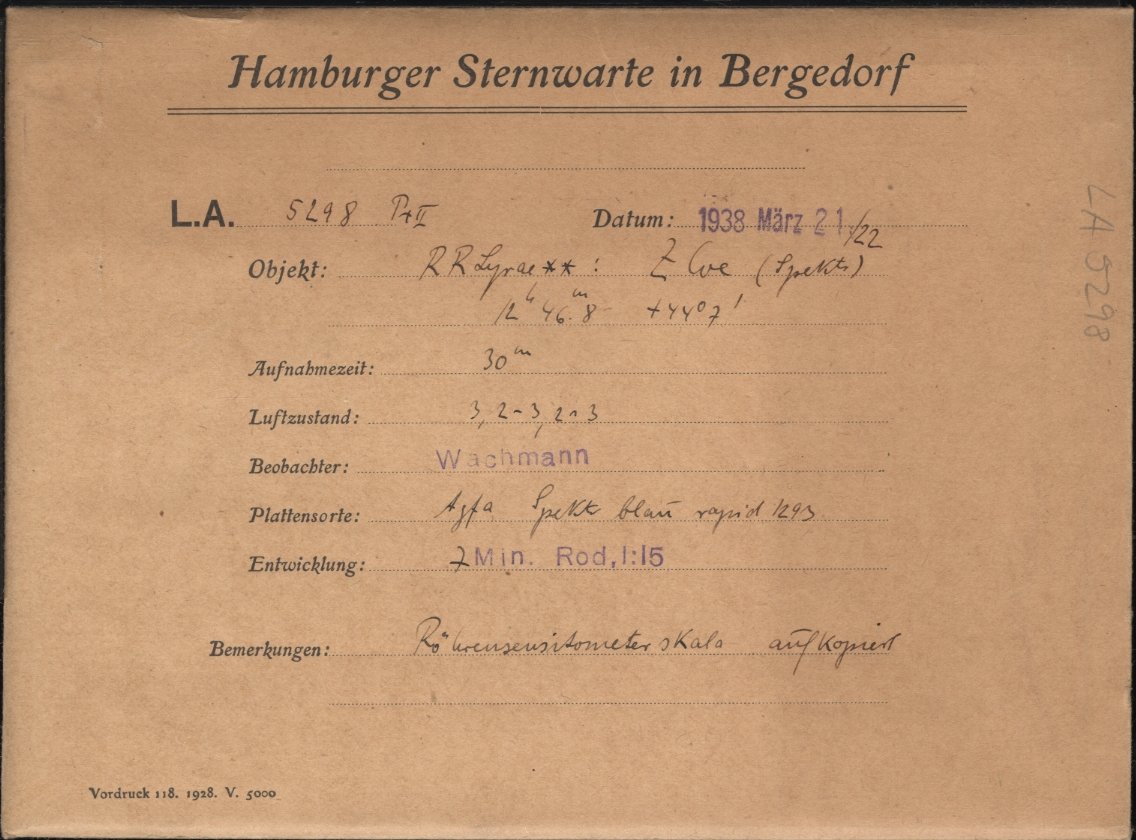 Hamburger Sternwarte in Bergedorf
L.A. 5298 Pr II Datum: 1938 März 21./22
Objekt: RR Lyrae ** : Z CVe (Spektr)
12h 46.m8 +44°7'
Aufnahmezeit: 30m
Luftzustand: 3, 2-3, 2-3
Beobachter: Wachmann
Plattensorte: Agfa Spektr blau rapid 1293
Entwicklung: 7 Min. Rod, 1:15
Bemerkungen: Röhrensensitometerskala aufkopiert
Vordruck 118. 1928. V. 5000
LA 5298